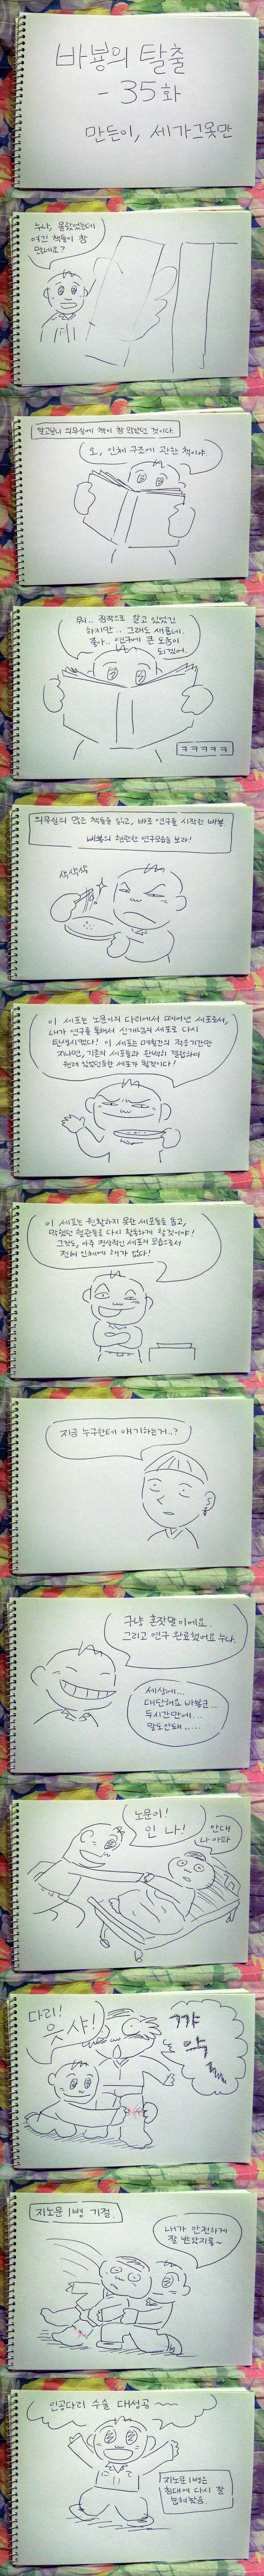 바뵹의 탈출
- 35화
만든이, 세가그못만
누나, 몰랐었는데
여긴 책들이 참
많네요?
알고보니 의무실에 책이 참 많았던 것이다.
오, 인체 구조에 관한 책이야.
뭐.. 짐작으로 알고 있었긴
하지만.. 그래도 새롭네.
좋아.. 연구에 큰 도움이
되겠어.
ㅋㅋㅋㅋㅋ
의무실의 많은 책들을 읽고, 바로 연구를 시작한 바뵹
바뵹의 현란한 연구모습을 보라!
삭삭삭
이 세포는 노문이의 다리에서 떼어낸 세포로서,
내가 연구를 통해서 신개념의 세포로 다시
탄생시켰다! 이 세포는 며칠간의 적응기간만
지나면, 기존의 세포들과 완벽히 결합하여
원래 있었던듯한 세포가 될것이다!
이 세포는 원활하지 못한 세포들을 돕고,
막혔던 혈관들을 다시 활동하게 할것이야!
그것도, 아주 정상적인 세포의 모습으로서
전혀 인체에 해가 없다!
지금 누구한테 얘기하는거..?
그냥 혼잣말이에요.
그리고 연구 완료했어요 누나.
세상에...
대단해요 바뵹군...
두시간만에...
말도안돼.....
노문이!
인 나!
안대
나 아파
다리!
읏 샤!
끄꺄
지노문 1병 기절.
내가 안전하게
잘 받았지롱~
인공다리 수술 대성공~~~
지노문 1병은
침대에 다시 잘
눕혀놨음.